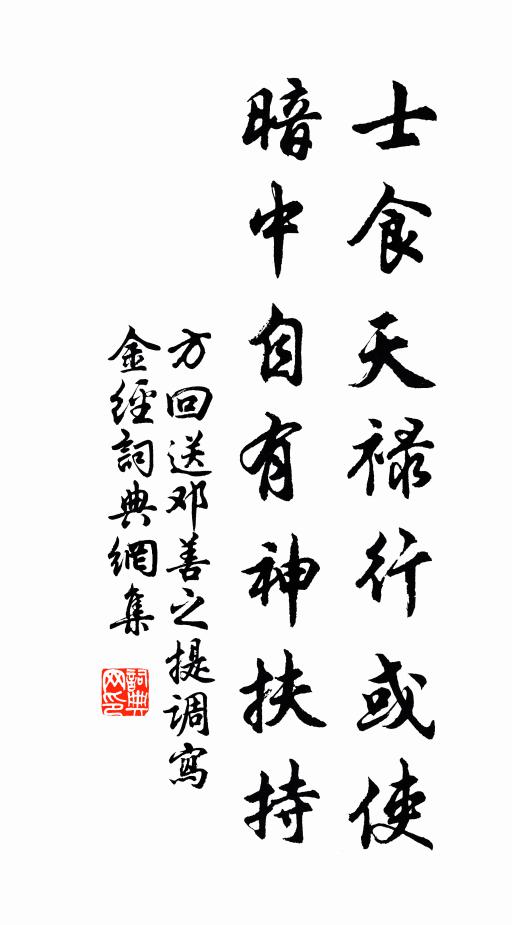 士食天禄行或使
暗中自有神扶持
方回送邓善之提调写
金經詞典網集
詞典网印